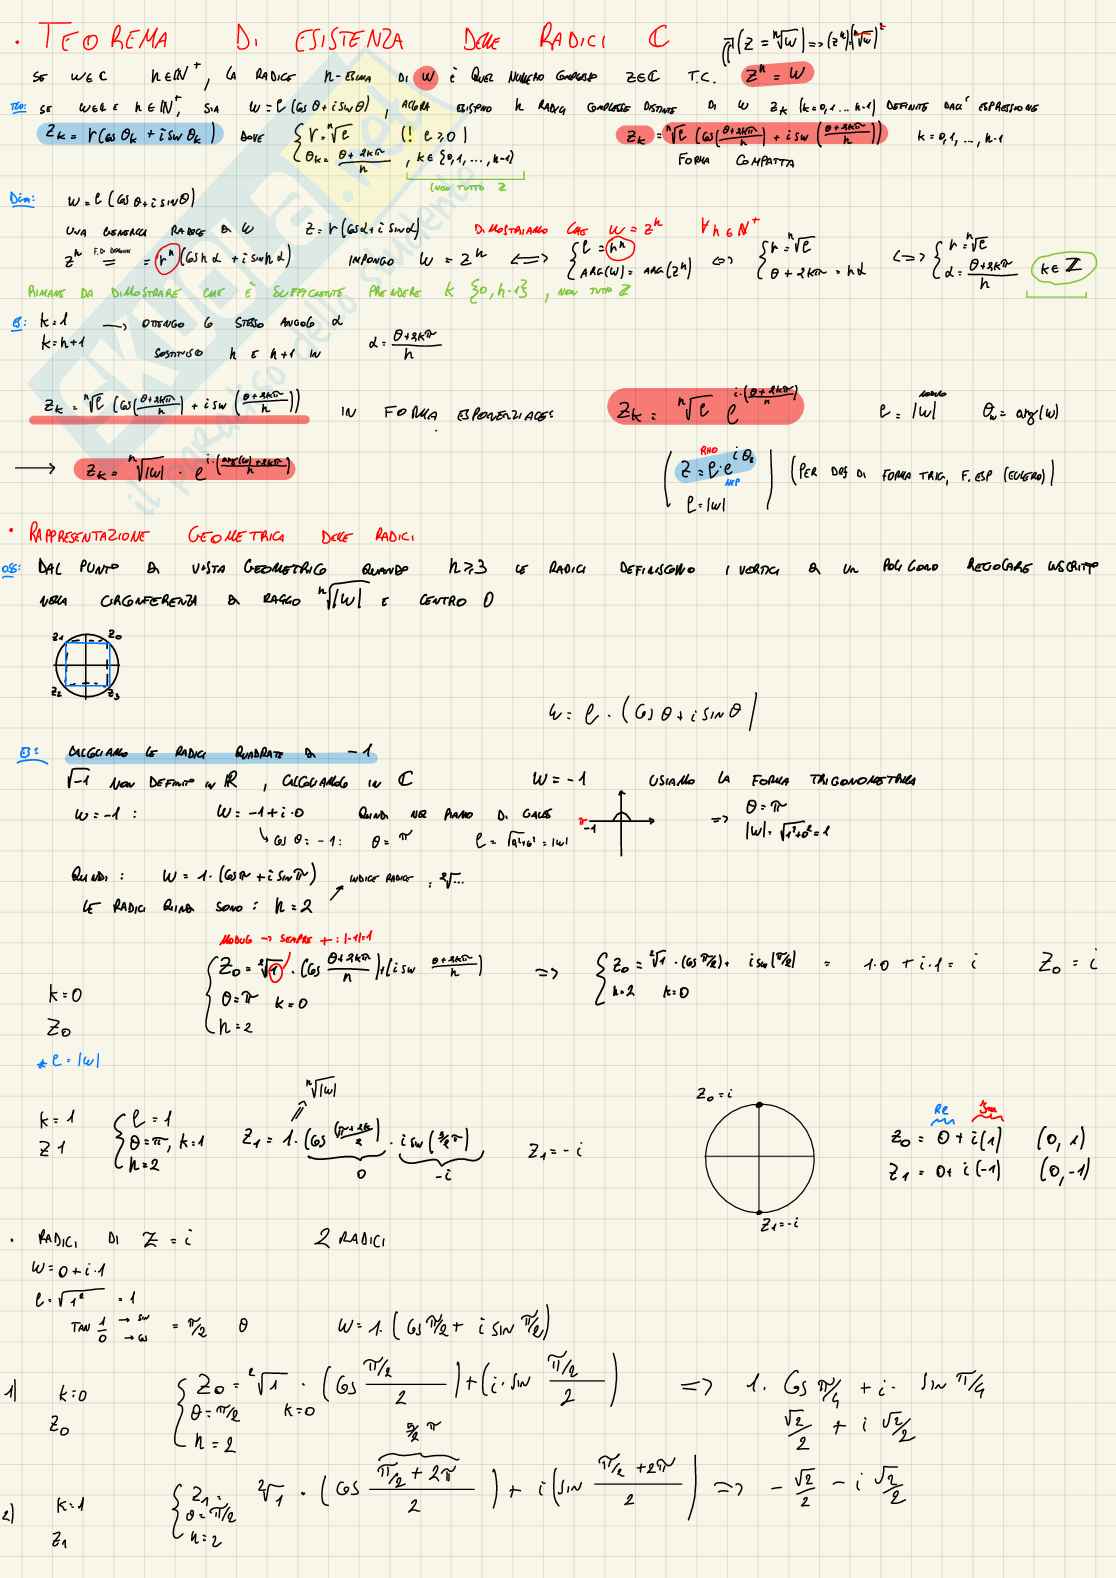 • TEOREMA DI ESISTENZA DELLE RADICI ℂ (z = ⁿ√w) => (z^n)
SE w∈ℂ n∈ℕ⁺, LA RADICE n-ESIMA DI w È QUEL NUMERO COMPLESSO z∈ℂ T.C. z^n = w
TEO: SE w∈ℂ E n∈ℕ⁺, SIA w=ρ(cos θ + i sin θ), ALLORA ESISTONO n RADICI COMPLESSE DISTINTE DI w z_k (k=0,1...n-1) DEFINITE DALL'ESPRESSIONE
z_k = r(cos θ_k + i sin θ_k) DOVE { r = ⁿ√ρ (! ρ≥0) z_k = ⁿ√ρ (cos((θ+2kπ)/n) + i sin((θ+2kπ)/n)) k=0,1,...,n-1
θ_k = (θ+2kπ)/n, k∈{0,1,...,n-1} FORMA COMPATTA
(NON TUTTO Z
DIM: w=ρ(cos θ + i sin θ)
UNA GENERICA RADICE DI w z=r(cos α + i sin α) DIMOSTRIAMO CHE w=z^n ∀n∈ℕ⁺
z^n = r^n (cos nα + i sin nα) IMPONGO w=z^n <=> { ρ=r^n ARG(w)=ARG(z^n) <=> { r=ⁿ√ρ θ+2kπ=nα <=> { r=ⁿ√ρ α=(θ+2kπ)/n k∈ℤ
RIMANE DA DIMOSTRARE CHE È SUFFICIENTE PRENDERE k {0,n-1}, NON TUTTO Z
ES: k=1 → OTTENGO LO STESSO ANGOLO α
k=n+1 SOSTITUISCO n E n+1 IN α=(θ+2kπ)/n
z_k = ⁿ√ρ (cos((θ+2kπ)/n) + i sin((θ+2kπ)/n)) IN FORMA ESPONENZIALE: z_k = ⁿ√ρ e^(i·((θ+2kπ)/n)) ρ=|w| MODULO θ_w=arg(w)
→ z_k = ⁿ√|w| · e^(i·((arg(w)+2kπ)/n)) ( RHO z=ρ·e^(iθ_z) NEP ρ=|w| ) (PER DEF DI FORMA TRIG, F. ESP (EULERO))
• RAPPRESENTAZIONE GEOMETRICA DELLE RADICI
OSS: DAL PUNTO DI VISTA GEOMETRICO QUANDO n≥3 LE RADICI DEFINISCONO I VERTICI DI UN POLIGONO REGOLARE INSCRITTO
NELLA CIRCONFERENZA DI RAGGIO ⁿ√|w| E CENTRO O
z1 z0
z2 z3
w=ρ·(cos θ + i sin θ)
ES: CALCOLIAMO LE RADICI QUADRATE DI -1
√-1 NON DEFINITO IN ℝ, CALCOLIAMOLO IN ℂ w=-1 USIAMO LA FORMA TRIGONOMETRICA
w=-1: w=-1+i·0 QUINDI NEL PIANO DI GAUSS π -1 => θ=π
cos θ=-1: θ=π ρ=√a²+b²=|w| |w|=√1²+0²=1
QUINDI: w=1·(cos π + i sin π) INDICE RADICE: ²√...
LE RADICI QUINDI SONO: n=2
MODULO → SEMPRE +: |-1|=1
k=0 { z0=²√1·(cos (θ+2kπ)/n)+(i sin (θ+2kπ)/n) => { z0=²√1·(cos π/2)+ i sin(π/2) = 1·0+i·1=i z0=i
z0 θ=π k=0 n=2 k=0
n=2
* ρ=|w|
ⁿ√|w|
k=1 { ρ=1 z1=1·(cos((π+2π)/2)·i sin(3/2 π) z1=-i
z1 θ=π, k=1 0 -i
n=2
z0=i
z1=-i
Re Im
z0=0+i(1) (0,1)
z1=0+i(-1) (0,-1)
• RADICI DI z=i 2 RADICI
w=0+i·1
ρ=√1² =1
TAN 1/0 → sin → cos = π/2 θ w=1·(cos π/2 + i sin π/2)
1) k=0 { z0=²√1·(cos (π/2)/2)+(i·sin (π/2)/2) => 1·cos π/4 + i· sin π/4
z0 θ=π/2 k=0 √2/2 + i √2/2
n=2
5/2 π
2) k=1 { z1= ²√1·(cos (π/2+2π)/2)+i(sin (π/2+2π)/2) => -√2/2 - i √2/2
z1 θ=π/2
n=2